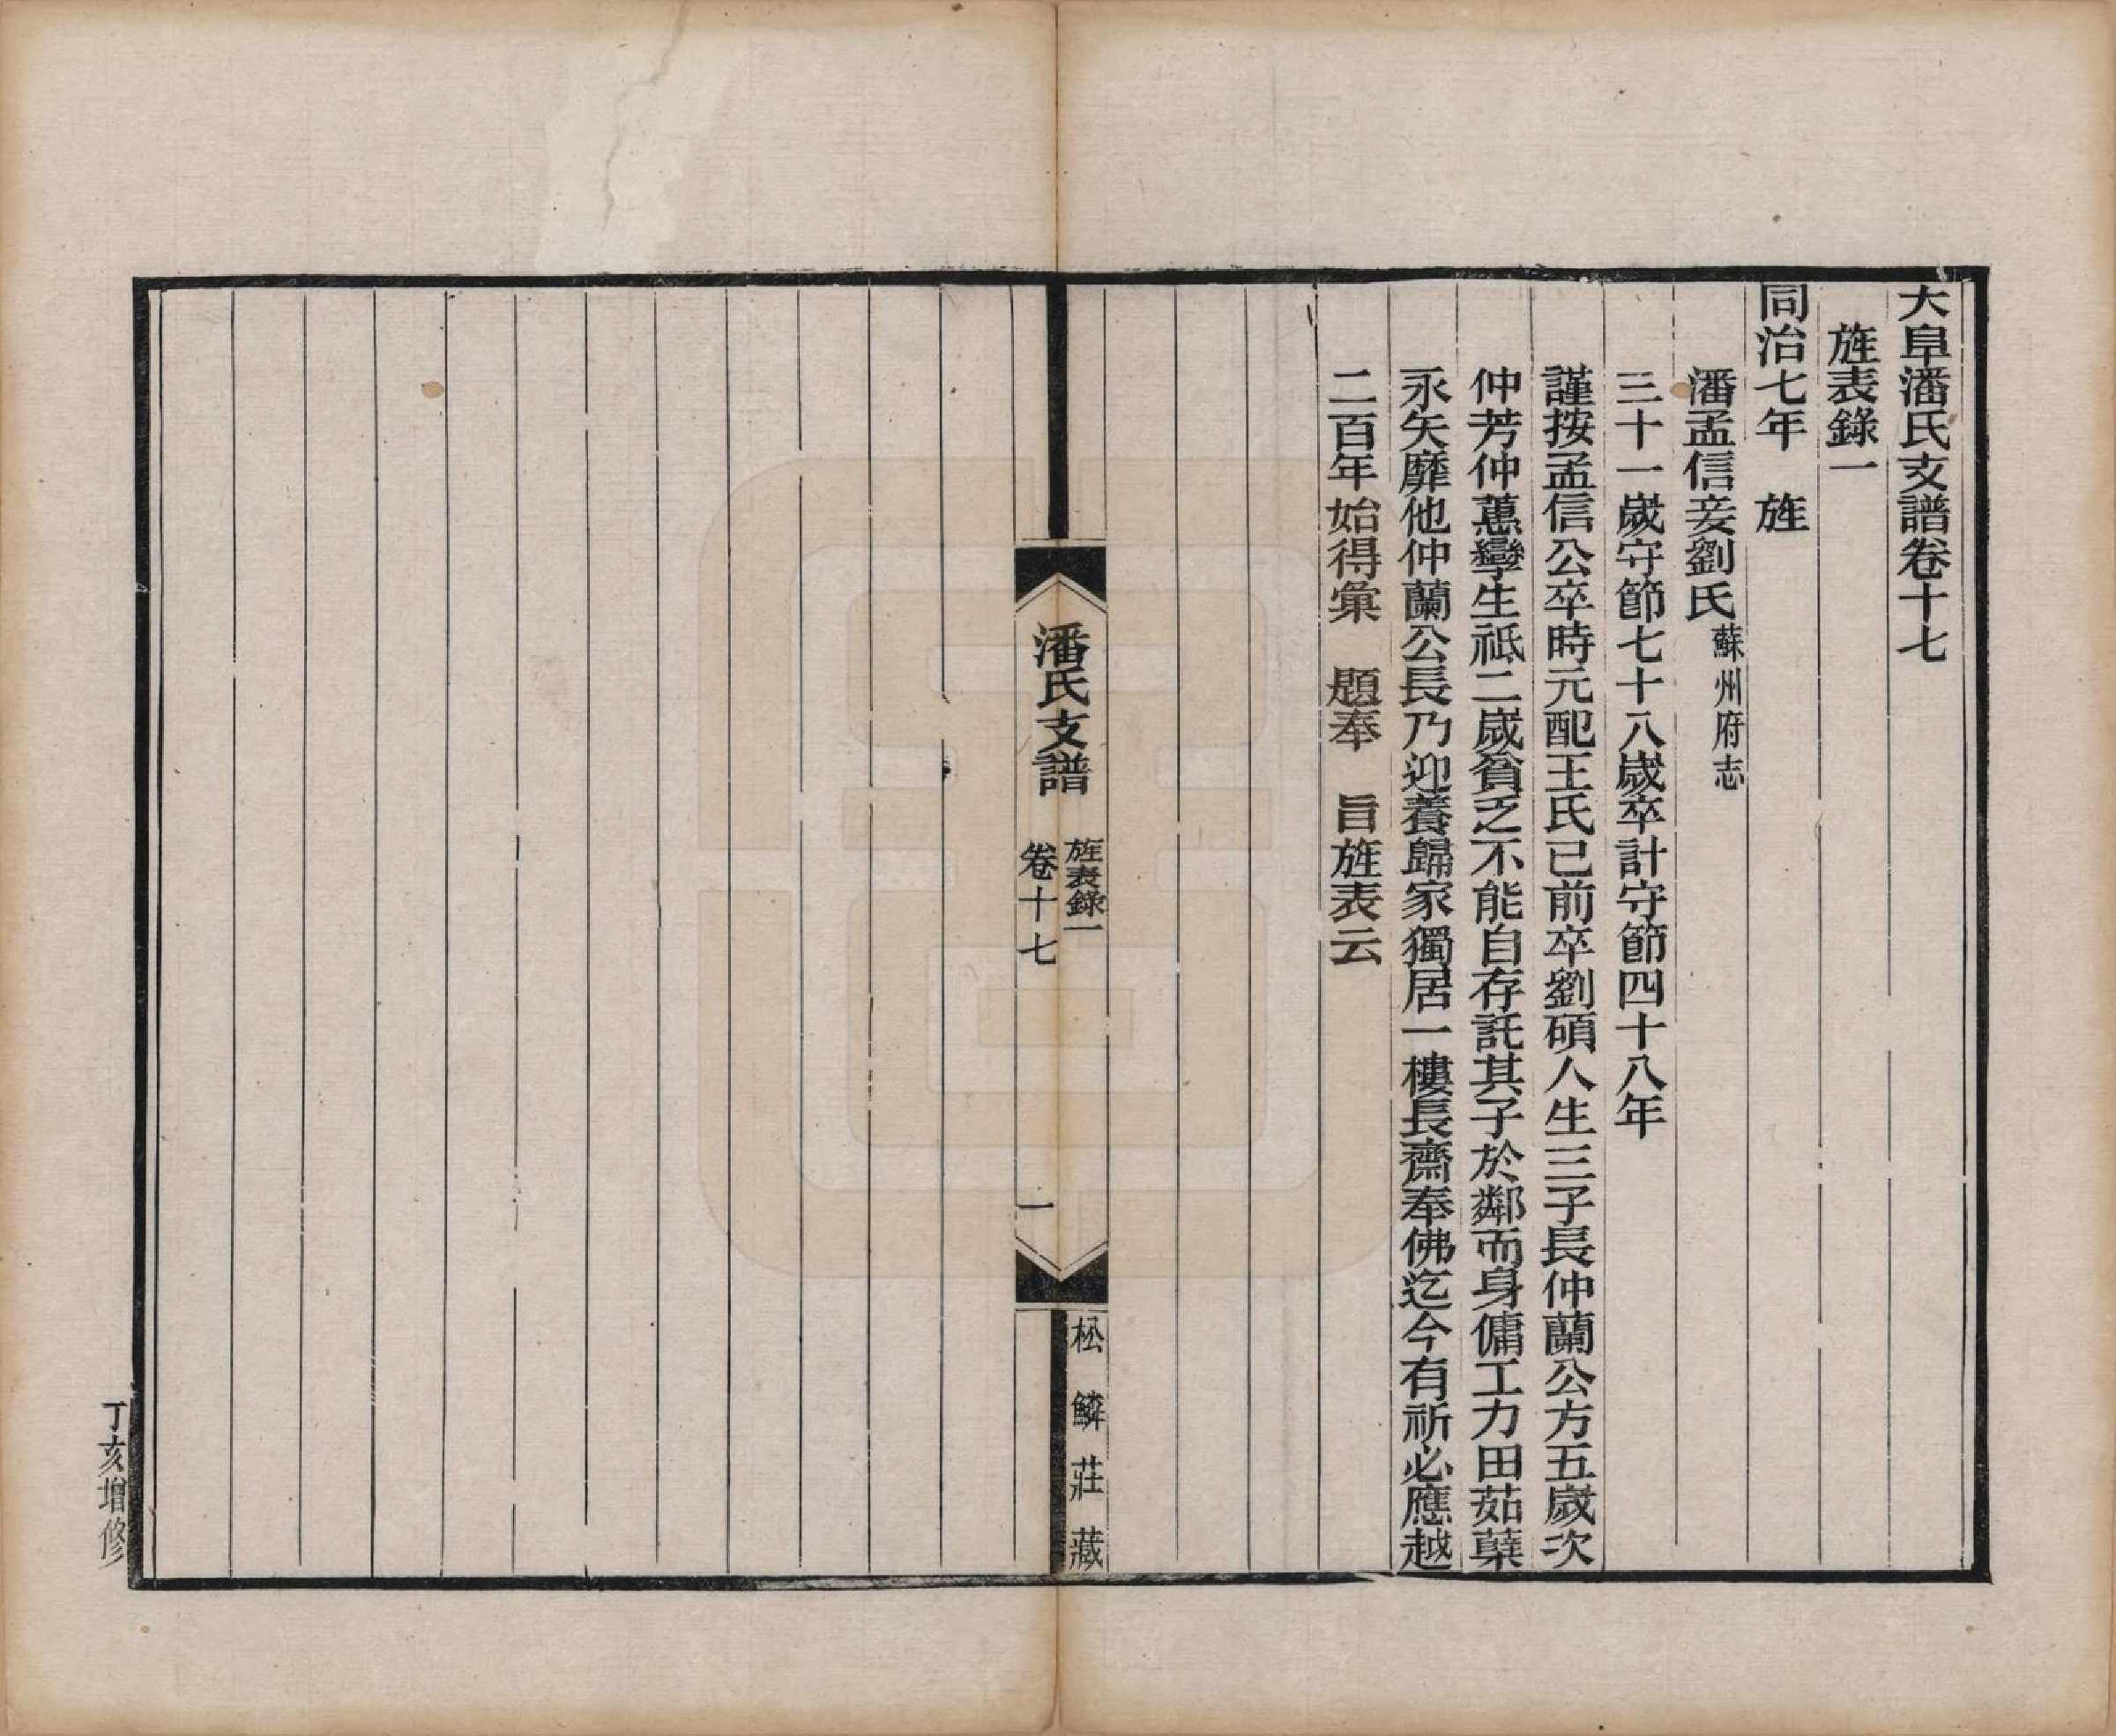 大阜潘氏支譜卷十七
旌表錄一
同治七年　旌
潘孟信妾劉氏蘇州府志
三十一歲守節七十八歲卒計守節四十八年
謹按孟信公卒時元配王氏已前卒劉碩人生三子長仲蘭公方五歲次
仲芳仲蕙孿生祗二歲貧乏不能自存託其子於鄰而身傭工力田茹蘗
永矢靡他仲蘭公長乃迎養歸家獨居一樓長齋奉佛迄今有祈必應越
二百年始得彙　題奉　旨旌表云
潘氏支譜
旌表錄一
卷十七
一
松鱗莊藏
丁亥增修